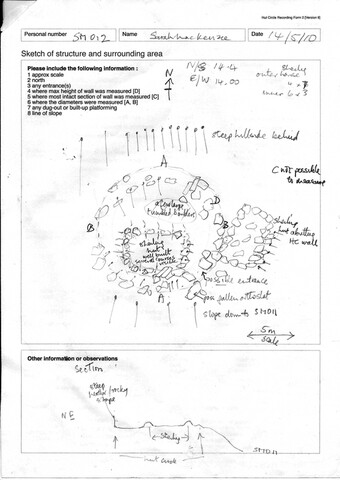 Hut Circle Recording Form (Version 5)
Personal number SM012 Name Date 14/5/10
Sketch of structure and surrounding area
Please include the following information :
1 approx scale
2 north
3 any entrance(s)
4 where max height of wall was measured [D]
5 where most intact section of wall was measured [C]
6 where the diameters were measured [A, B]
7 any dug-out or built-up platforming
8 line of slope
N
N/S 14.4
E/W 14.00
outer
inner 6 x 3
steep hillside behind
C not possible
to measure
A
D
B
B
tumbled boulders
shieling
hut
well built
shieling
hut abutting
HC wall
possible entrance
A
poss fallen orthostat
slope down to SM011
5m
scale
Other information or observations
Section
steep
slope
NE
SM011
hut circle